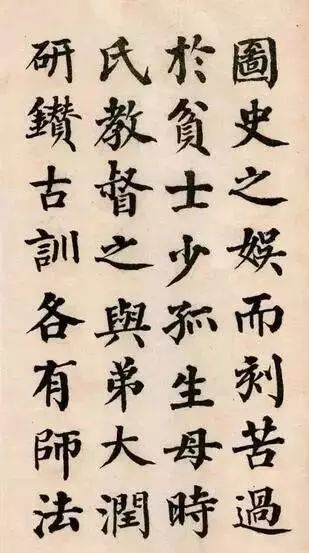 圖史之娛而刻苦過
於貧士少孤生母時
氏教督之與弟大潤
研鑚古訓各有師法